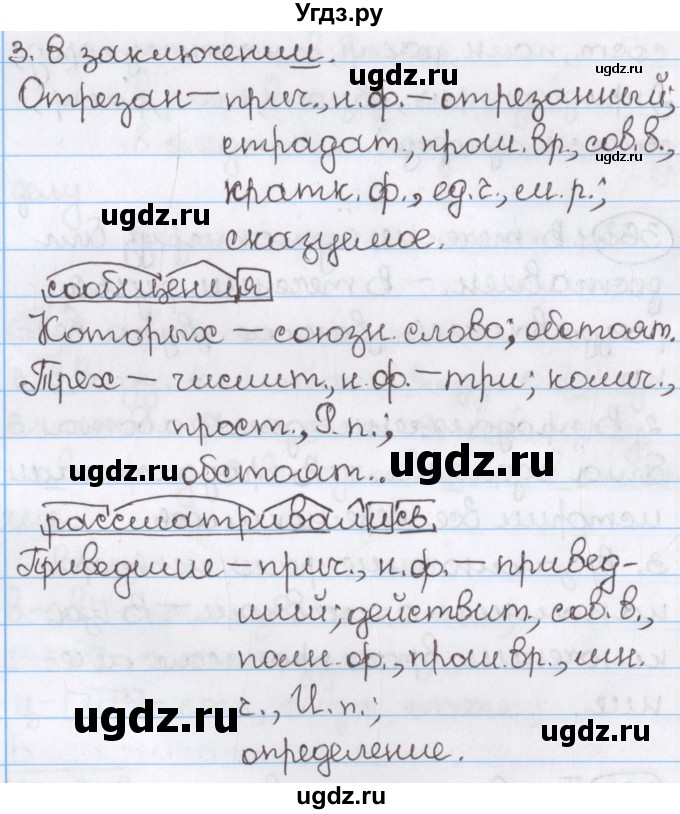 Угдз.ру
3. в заключении.
Отрезан – прич., н.ф. – отрезанный;
страдат., прош. вр., сов. в.,
кратк. ф., ед. ч., м. р.;
сказуемое.
сообщения
Которых – союзн. слово; обстоят.
Трех – числит., н.ф. – три; колич.,
прост., Р.п.;
обстоят..
рассматривались
Приведшие – прич., н.ф. – привед-
ший; действит., сов. в.,
полн. ф., прош. вр., мн.
ч., И.п.;
определение.
ugdz.ru
ugdz.ru
ugdz.ru
ugdz.ru
ugdz.ru
ugdz.ru
ugdz.ru
ugdz.ru
ugdz.ru